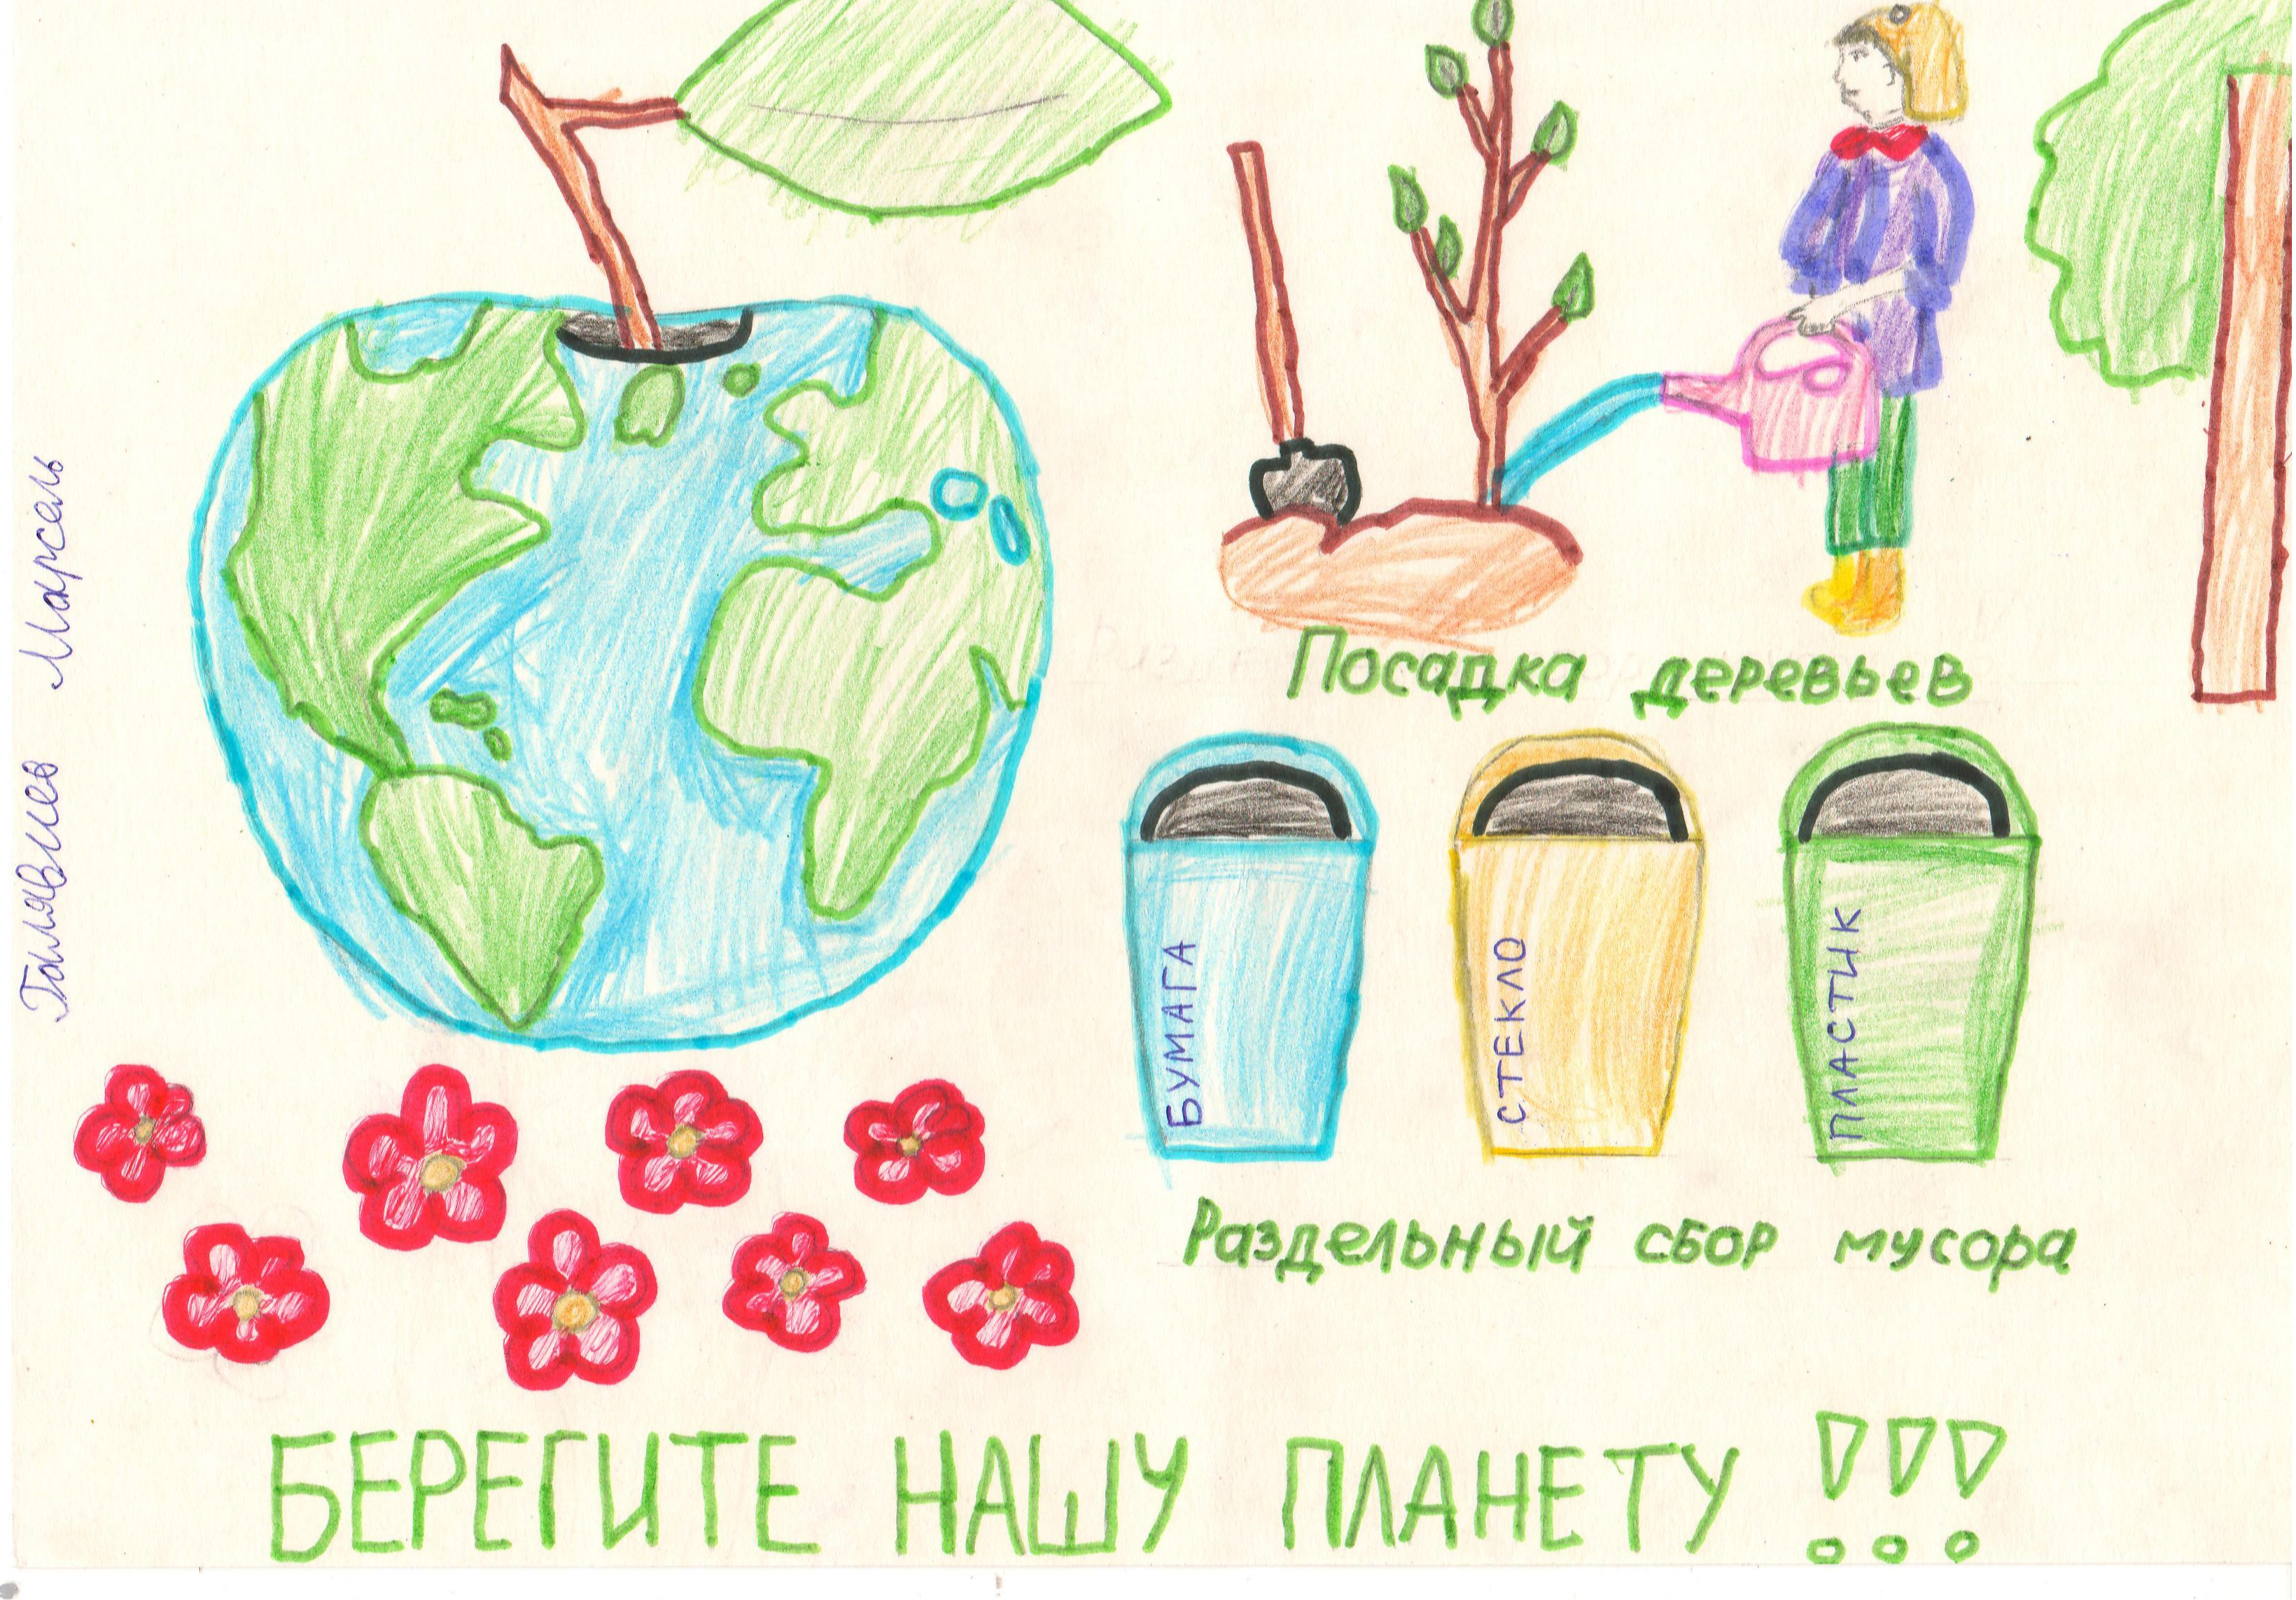 Галявиев Марсель
Посадка деревьев
БУМАГА
СТЕКЛО
ПЛАСТИК
Раздельный сбор мусора
БЕРЕГИТЕ НАШУ ПЛАНЕТУ !!!